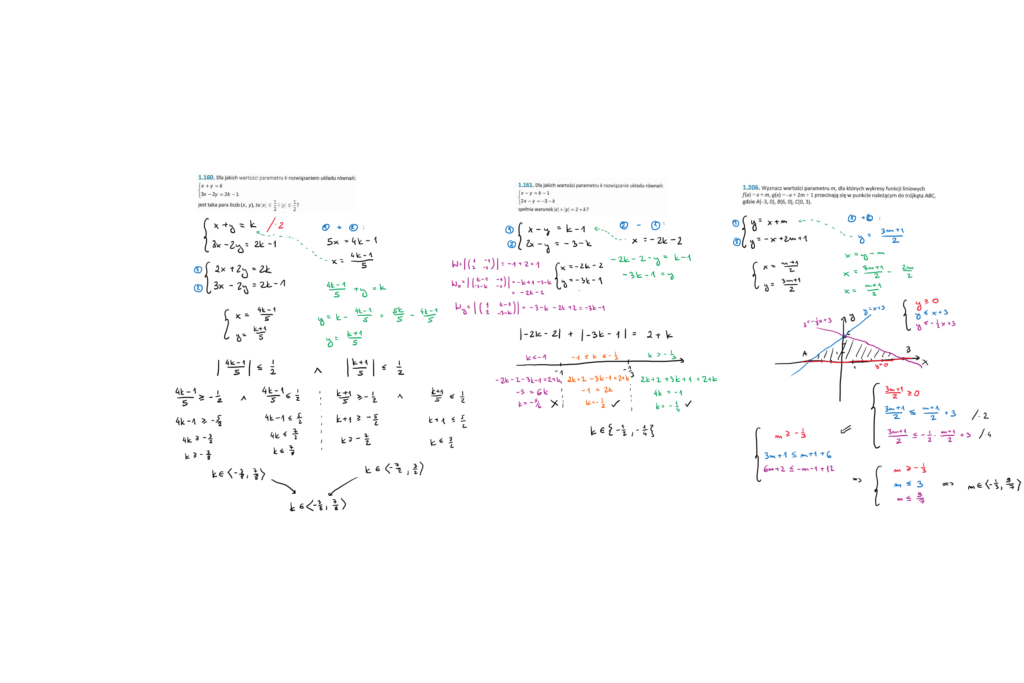 1.160. Dla jakich wartości parametru k rozwiązaniem układu równań:
{x + y = k
3x − 2y = 2k − 1
jest taka para liczb (x, y), że |x| ≤ 1/2 i |y| ≤ 1/2?
{x + y = k /·2
3x − 2y = 2k − 1
① {2x + 2y = 2k
② 3x − 2y = 2k − 1
{x = (4k−1)/5
y = (k+1)/5
① + ② :
5x = 4k − 1
x = (4k−1)/5
(4k−1)/5 + y = k
y = k − (4k−1)/5 = 5k/5 − (4k−1)/5
y = (k+1)/5
|(4k−1)/5| ≤ 1/2 ∧ |(k+1)/5| ≤ 1/2
(4k−1)/5 ≥ −1/2 ∧ (4k−1)/5 ≤ 1/2 (k+1)/5 ≥ −1/2 ∧ (k+1)/5 ≤ 1/2
4k−1 ≥ −5/2 4k−1 ≤ 5/2 k+1 ≥ −5/2 k+1 ≤ 5/2
4k ≥ −3/2 4k ≤ 7/2 k ≥ −7/2 k ≤ 3/2
k ≥ −3/8 k ≤ 7/8
k ∈ ⟨−3/8, 7/8⟩ k ∈ ⟨−7/2, 3/2⟩
k ∈ ⟨−3/8, 7/8⟩
1.161. Dla jakich wartości parametru k rozwiązanie układu równań:
{x − y = k − 1
2x − y = −3 − k
spełnia warunek |x| + |y| = 2 + k?
① {x − y = k − 1
② 2x − y = −3 − k
② − ① :
x = −2k − 2
−2k − 2 − y = k − 1
−3k − 1 = y
W = |(1 −1 2 −1)| = −1 + 2 = 1
Wx = |(k−1 −1 −3−k −1)| = −k+1 −3−k
= −2k − 2
Wy = |(1 k−1 2 −3−k)| = −3−k −2k+2 = −3k−1
{x = −2k − 2
y = −3k − 1
|−2k − 2| + |−3k − 1| = 2 + k
k < −1 −1 ≤ k ≤ −1/3 k > −1/3
−1 −1/3
−2k−2−3k−1=2+k 2k+2−3k−1=2+k 2k+2+3k+1=2+k
−5 = 6k −1 = 2k 4k = −1
k = −5/6 ✗ k = −1/2 ✓ k = −1/4 ✓
k ∈ {−1/2, −1/4}
1.206. Wyznacz wartości parametru m, dla których wykresy funkcji liniowych
f(x) = x + m, g(x) = −x + 2m + 1 przecinają się w punkcie należącym do trójkąta ABC,
gdzie A(−3, 0), B(6, 0), C(0, 3).
① {y = x + m
② y = −x + 2m + 1
{x = (m+1)/2
y = (3m+1)/2
① + ② :
y = (3m+1)/2
x = y − m
x = (3m+1)/2 − 2m/2
x = (m+1)/2
y = −1/2x + 3
y = x + 3
y
C
A
B
1
y = 0
x
{y ≥ 0
y ≤ x + 3
y ≤ −1/2x + 3
{(3m+1)/2 ≥ 0
(3m+1)/2 ≤ (m+1)/2 + 3 /·2
(3m+1)/2 ≤ −1/2 · (m+1)/2 + 3 /·4
{m ≥ −1/3
3m + 1 ≤ m + 1 + 6
6m + 2 ≤ −m − 1 + 12
⇒ {m ≥ −1/3
m ≤ 3
m ≤ 9/7
⇒ m ∈ ⟨−1/3, 9/7⟩